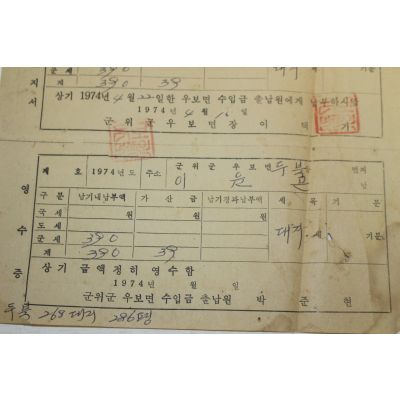 군세 390
계 390 39
상기 1974년 4월 22일한 우보면 수입금 출납원에게 납부하시압
1974년 4월 16일
군위군우보면장 이 택 기
영수증
제 호 1974년도 주소 군위군 우보면 두북 번지
이 운 납
구분 납기내납부액 가산금 납기경과납부액 세목 기분
국세 원 원 원
도세
군세 390
계 390 39
대지세 기분
상기 금액 정히 영수함
1974년 월 일
군위군 우보면 수입금 출납원 박 준 현
두북 268 대지 286평